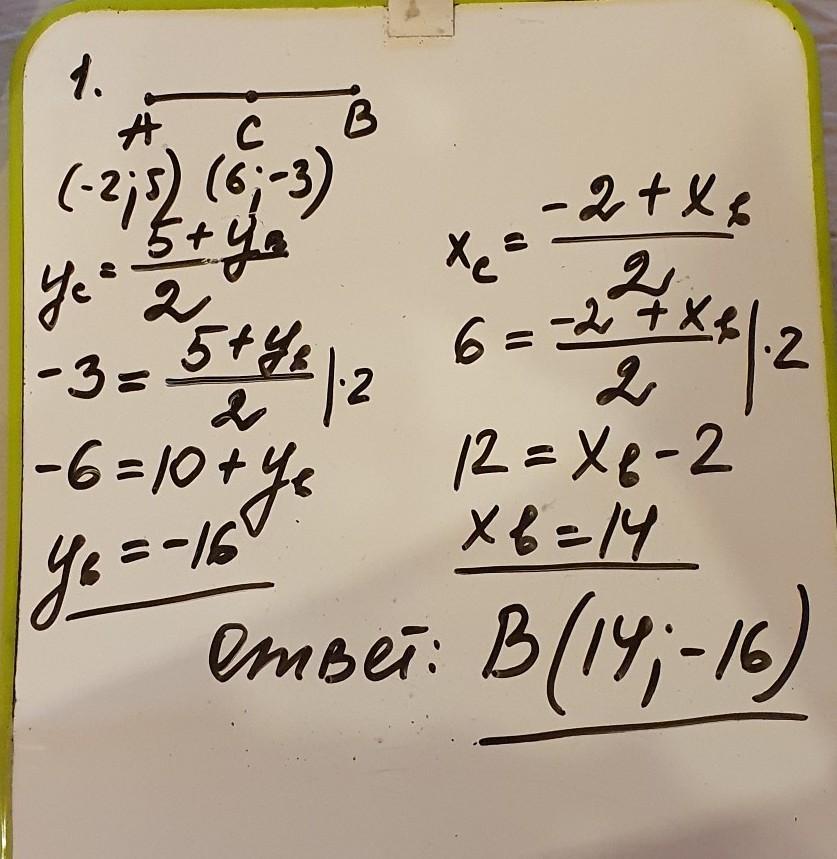 1.
A C B
(-2;5) (6;-3)
yc = (5+yв)/2
-3 = (5+yв)/2 |·2
-6=10+yв
yв=-16
xc = (-2+xв)/2
6 = (-2+xв)/2 |·2
12=xв-2
xв=14
Ответ: B(14;-16)